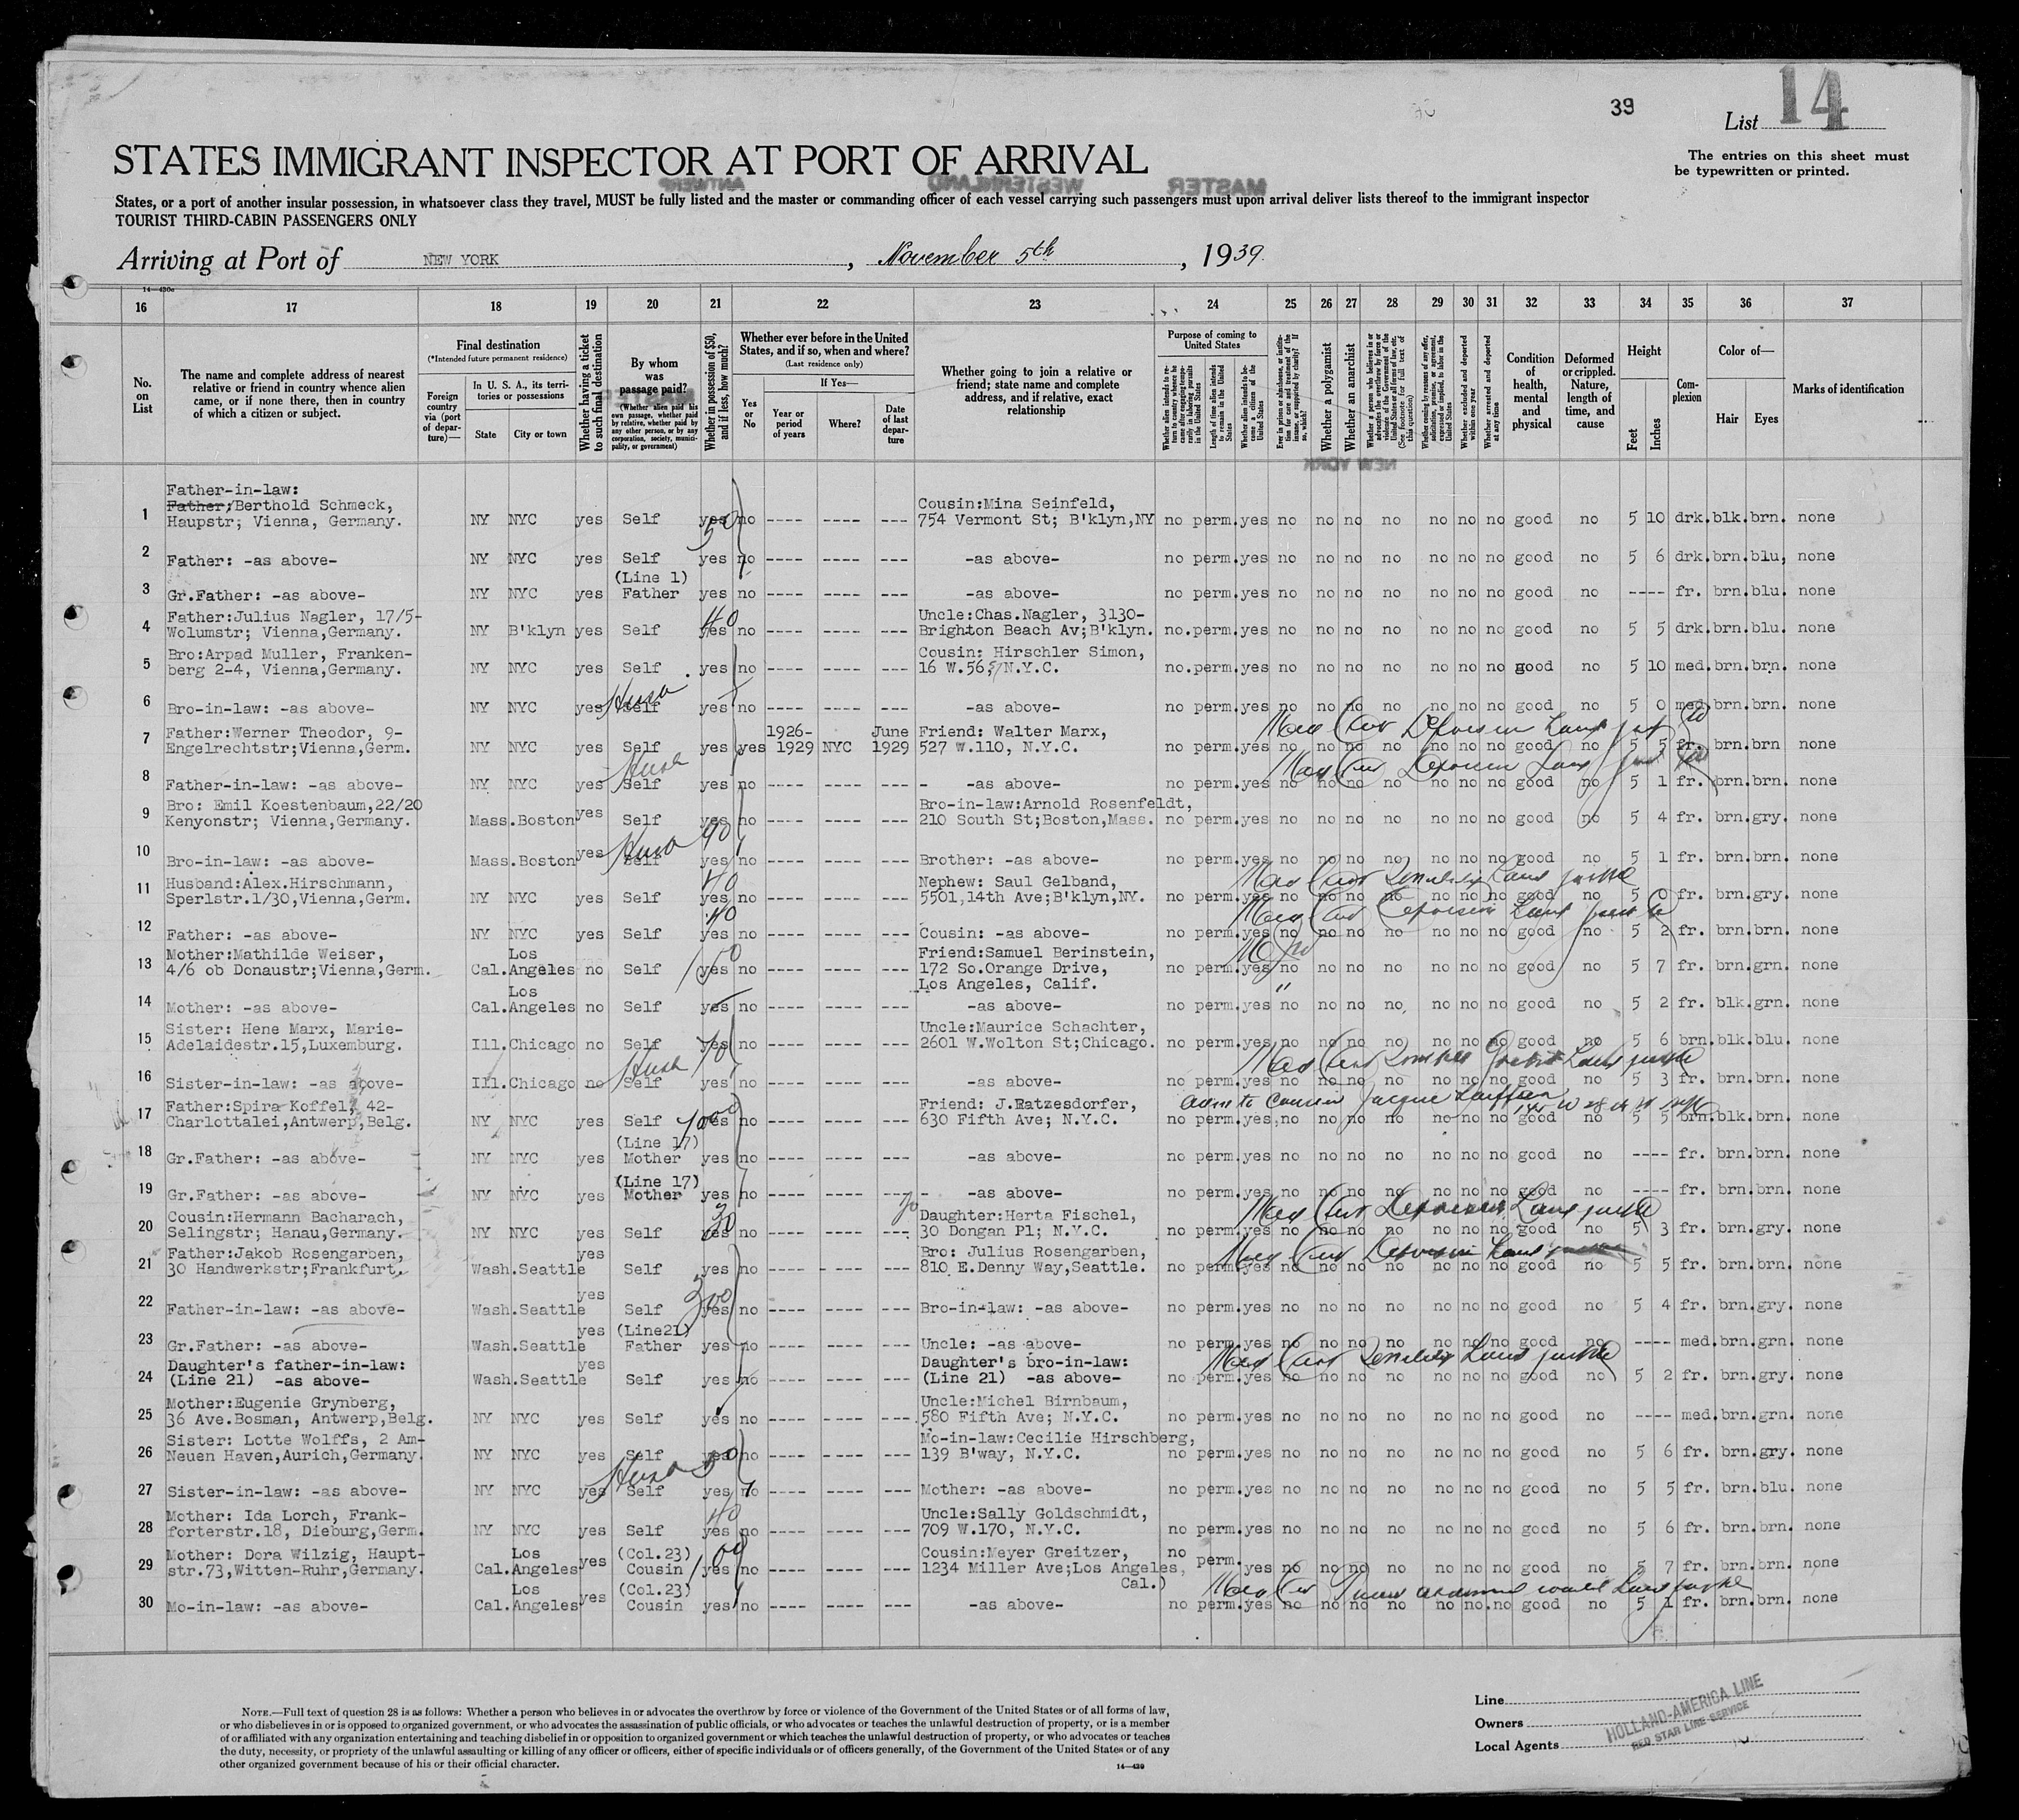 39
List 14
The entries on this sheet must
be typewritten or printed.
STATES IMMIGRANT INSPECTOR AT PORT OF ARRIVAL
ANTWERP WESTERNLAND MASTER
States, or a port of another insular possession, in whatsoever class they travel, MUST be fully listed and the master or commanding officer of each vessel carrying such passengers must upon arrival deliver lists thereof to the immigrant inspector
TOURIST THIRD-CABIN PASSENGERS ONLY
Arriving at Port of NEW YORK, November 5th, 1939.
16 17 18 19 20 21 22 23 24 25 26 27 28 29 30 31 32 33 34 35 36 37
No. on List
The name and complete address of nearest relative or friend in country whence alien came, or if none there, then in country of which a citizen or subject.
Final destination
(*Intended future permanent residence)
Foreign country via (port of departure)—
In U. S. A., its territories or possessions
State City or town
Whether having a ticket to such final destination
By whom was passage paid?
(Whether alien paid his own passage, whether paid by relative, whether paid by any other person, or by any corporation, society, municipality, or government)
Whether in possession of $50, and if less, how much?
Whether ever before in the United States, and if so, when and where?
(Last residence only)
Yes or No
If Yes—
Year or period of years Where? Date of last departure
Whether going to join a relative or friend; state name and complete address, and if relative, exact relationship
Purpose of coming to United States
Length of time alien intends to remain in the United States
Whether alien intends to become a citizen of the United States
Whether a polygamist
Whether an anarchist
Whether excluded and deported within one year
Whether arrested and deported at any time
Condition of health, mental and physical
Deformed or crippled. Nature, length of time, and cause
Height
Feet Inches
Complexion
Color of—
Hair Eyes
Marks of identification
NEW YORK
1 Father-in-law: Father: Berthold Schmeck, Haupstr; Vienna, Germany. NY NYC yes Self yes 50 no ---- ---- --- Cousin:Mina Seinfeld, 754 Vermont St; B'klyn,NY no perm. yes no no no no no no no good no 5 10 drk. blk. brn. none
2 Father: -as above- NY NYC yes Self yes no ---- ---- --- -as above- no perm. yes no no no no no no no good no 5 6 drk. brn. blu, none
3 Gr.Father: -as above- NY NYC yes (Line 1) Father yes no ---- ---- --- -as above- no perm. yes no no no no no no no good no ---- fr. brn. blu. none
4 Father:Julius Nagler, 17/5- Wolumstr; Vienna,Germany. NY B'klyn yes Self yes 40 no ---- ---- --- Uncle:Chas.Nagler, 3130- Brighton Beach Av;B'klyn. no.perm. yes no no no no no no no good no 5 5 drk. brn. blu. none
5 Bro:Arpad Muller, Franken- berg 2-4, Vienna,Germany. NY NYC yes Self yes no ---- ---- --- Cousin: Hirschler Simon, 16 W.56, N.Y.C. no.perm. yes no no no no no no no good no 5 10 med. brn. brn. none
6 Bro-in-law: -as above- NY NYC yes Self yes no ---- ---- --- -as above- no perm. yes no no no no no no no good no 5 0 med. brn. brn. none
7 Father:Werner Theodor, 9- Engelrechtstr;Vienna,Germ. NY NYC yes Self yes yes 1926- 1929 NYC June 1929 Friend: Walter Marx, 527 W.110, N.Y.C. no perm. yes no no no no no no no good no 5 5 fr. brn. brn none
8 Father-in-law: -as above- NY NYC yes Self yes no ---- ---- --- -as above- no perm. yes no no no no no no no good no 5 1 fr. brn. brn. none
9 Bro: Emil Koestenbaum,22/20 Kenyonstr; Vienna,Germany. Mass. Boston yes Self yes no ---- ---- --- Bro-in-law:Arnold Rosenfeldt, 210 South St;Boston,Mass. no perm. yes no no no no no no no good no 5 4 fr. brn. gry. none
10 Bro-in-law: -as above- Mass. Boston yes Self yes no ---- ---- --- Brother: -as above- no perm. yes no no no no no no no good no 5 1 fr. brn. brn. none
11 Husband:Alex.Hirschmann, Sperlstr.1/30,Vienna,Germ. NY NYC yes Self yes 40 no ---- ---- --- Nephew: Saul Gelband, 5501,14th Ave;B'klyn,NY. no perm. yes no no no no no no no good no 5 0 fr. brn. gry. none
12 Father: -as above- NY NYC yes Self yes 40 no ---- ---- --- Cousin: -as above- no perm. yes no no no no no no no good no 5 2 fr. brn. brn. none
13 Mother:Mathilde Weiser, 4/6 ob Donaustr;Vienna,Germ. Cal. Los Angeles no Self yes 150 no ---- ---- --- Friend:Samuel Berinstein, 172 So.Orange Drive, Los Angeles, Calif. no perm. yes no no no no no no no good no 5 7 fr. brn. grn. none
14 Mother: -as above- Cal. Los Angeles no Self yes no ---- ---- --- -as above- no perm. yes no no no no no no no good no 5 2 fr. blk. grn. none
15 Sister: Hene Marx, Marie- Adelaidestr.15,Luxemburg. Ill. Chicago no Self yes 70 no ---- ---- --- Uncle:Maurice Schachter, 2601 W.Wolton St;Chicago. no perm. yes no no no no no no no good no 5 6 brn. blk. blu. none
16 Sister-in-law: -as above- Ill. Chicago no Self yes no ---- ---- --- -as above- no perm. yes no no no no no no no good no 5 3 fr. brn. brn. none
17 Father:Spira Koffel, 42- Charlottalei,Antwerp,Belg. NY NYC yes Self yes no ---- ---- --- Friend: J.Ratzesdorfer, 630 Fifth Ave; N.Y.C. no perm. yes no no no no no no no good no 5 5 brn. blk. brn. none
18 Gr.Father: -as above- NY NYC yes (Line 17) Mother yes no ---- ---- --- -as above- no perm. yes no no no no no no no good no ---- fr. brn. brn. none
19 Gr.Father: -as above- NY NYC yes (Line 17) Mother yes no ---- ---- --- -as above- no perm. yes no no no no no no no good no ---- fr. brn. brn. none
20 Cousin:Hermann Bacharach, Selingstr; Hanau,Germany. NY NYC yes Self yes no ---- ---- --- Daughter:Herta Fischel, 30 Dongan Pl; N.Y.C. no perm. yes no no no no no no no good no 5 3 fr. brn. gry. none
21 Father:Jakob Rosengarben, 30 Handwerkstr;Frankfurt. Wash. Seattle yes Self yes no ---- ---- --- Bro: Julius Rosengarben, 810 E.Denny Way,Seattle. no perm. yes no no no no no no no good no 5 5 fr. brn. brn. none
22 Father-in-law: -as above- Wash. Seattle yes Self yes 300 no ---- ---- --- Bro-in-law: -as above- no perm. yes no no no no no no no good no 5 4 fr. brn. gry. none
23 Gr.Father: -as above- Wash. Seattle yes (Line21) Father yes no ---- ---- --- Uncle: -as above- no perm. yes no no no no no no no good no ---- med. brn. grn. none
24 Daughter's father-in-law: (Line 21) -as above- Wash. Seattle yes Self yes no ---- ---- --- Daughter's bro-in-law: (Line 21) -as above- no perm. yes no no no no no no no good no 5 2 fr. brn. gry. none
25 Mother:Eugenie Grynberg, 36 Ave.Bosman, Antwerp,Belg. NY NYC yes Self yes no ---- ---- --- Uncle:Michel Birnbaum, 580 Fifth Ave; N.Y.C. no perm. yes no no no no no no no good no ---- med. brn. grn. none
26 Sister: Lotte Wolffs, 2 Am- Neuen Haven,Aurich,Germany. NY NYC yes Self yes 50 no ---- ---- --- Mo-in-law:Cecilie Hirschberg, 139 B'way, N.Y.C. no perm. yes no no no no no no no good no 5 6 fr. brn. gry. none
27 Sister-in-law: -as above- NY NYC yes Self yes no ---- ---- --- Mother: -as above- no perm. yes no no no no no no no good no 5 5 fr. brn. blu. none
28 Mother: Ida Lorch, Frank- forterstr.18, Dieburg,Germ. NY NYC yes Self yes 40 no ---- ---- --- Uncle:Sally Goldschmidt, 709 W.170, N.Y.C. no perm. yes no no no no no no no good no 5 6 fr. brn. brn. none
29 Mother: Dora Wilzig, Haupt- str.73,Witten-Ruhr,Germany. Cal. Los Angeles yes (Col.23) Cousin yes no ---- ---- --- Cousin:Meyer Greitzer, 1234 Miller Ave;Los Angeles, Cal.) no perm. yes no no no no no no no good no 5 7 fr. brn. brn. none
30 Mo-in-law: -as above- Cal. Los Angeles yes (Col.23) Cousin yes no ---- ---- --- -as above- no perm. yes no no no no no no no good no 5 1 fr. brn. brn. none
NOTE.—Full text of question 28 is as follows: Whether a person who believes in or advocates the overthrow by force or violence of the Government of the United States or of all forms of law,
or who disbelieves in or is opposed to organized government, or who advocates the assassination of public officials, or who advocates or teaches the unlawful destruction of property, or is a member
of or affiliated with any organization entertaining and teaching disbelief in or opposition to organized government or which teaches the unlawful destruction of property, or who advocates or teaches
the duty, necessity, or propriety of the unlawful assaulting or killing of any officer or officers, either of specific individuals or of officers generally, of the Government of the United States or of any
other organized government because of his or their official character.
14—430
Line
Owners
Local Agents
HOLLAND-AMERICA LINE
RED STAR LINE SERVICE